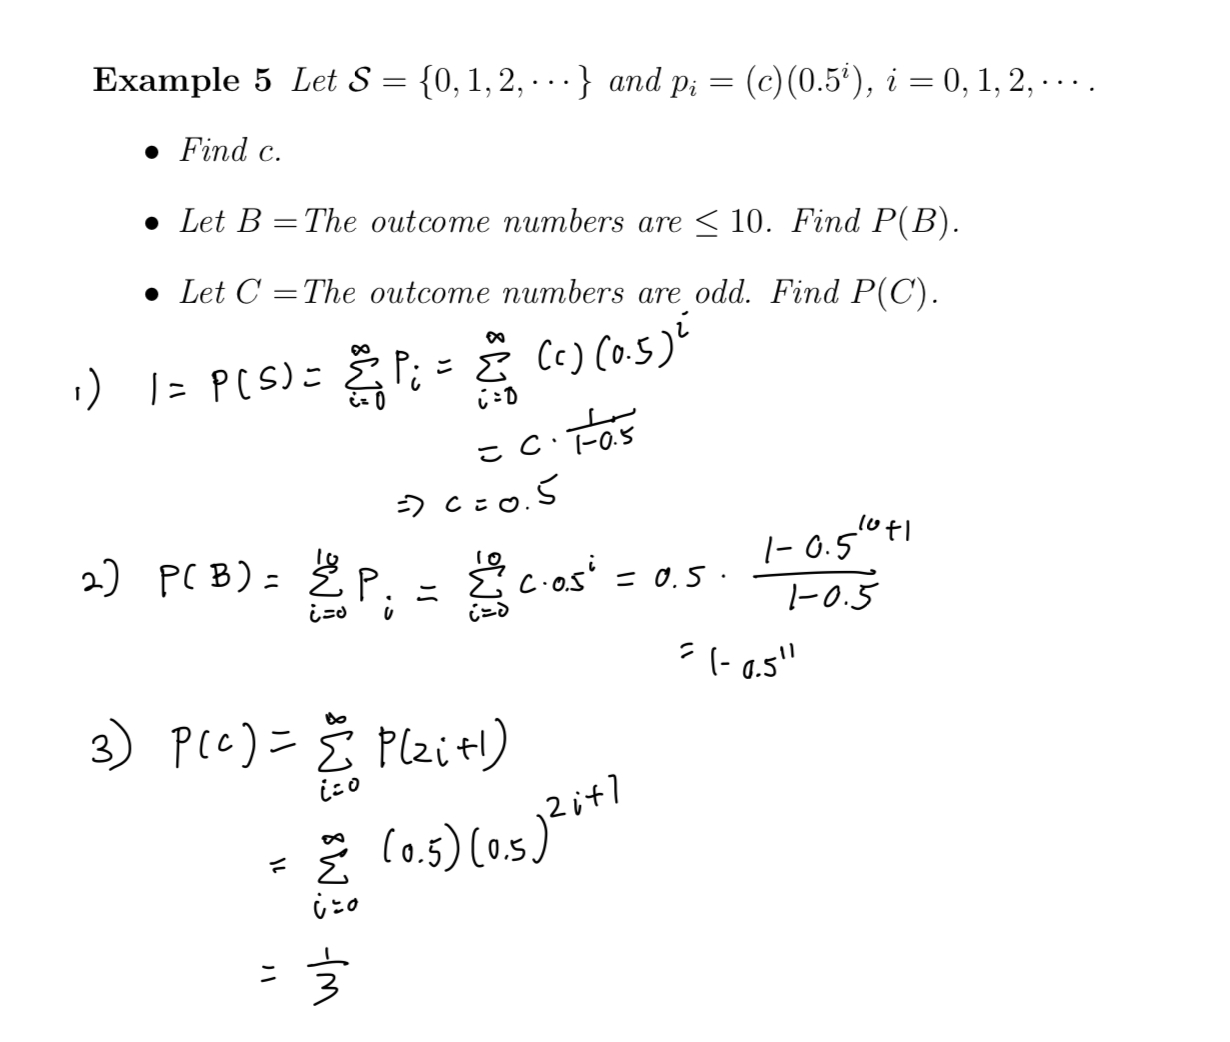 Example 5 Let 𝒮 = {0, 1, 2, ⋯} and pᵢ = (c)(0.5ⁱ), i = 0, 1, 2, ⋯ .
• Find c.
• Let B =The outcome numbers are ≤ 10. Find P(B).
• Let C =The outcome numbers are odd. Find P(C).
1) 1 = P(S) = \sum_{i=0}^{∞} P_i = \sum_{i=0}^{∞} (c)(0.5)^i
= c · \frac{1}{1-0.5}
⇒ c = 0.5
2) P(B) = \sum_{i=0}^{10} P_i = \sum_{i=0}^{10} c·0.5^i = 0.5 · \frac{1-0.5^{10+1}}{1-0.5}
= 1-0.5^{11}
3) P(C) = \sum_{i=0}^{∞} P(2i+1)
= \sum_{i=0}^{∞} (0.5)(0.5)^{2i+1}
= \frac{1}{3}